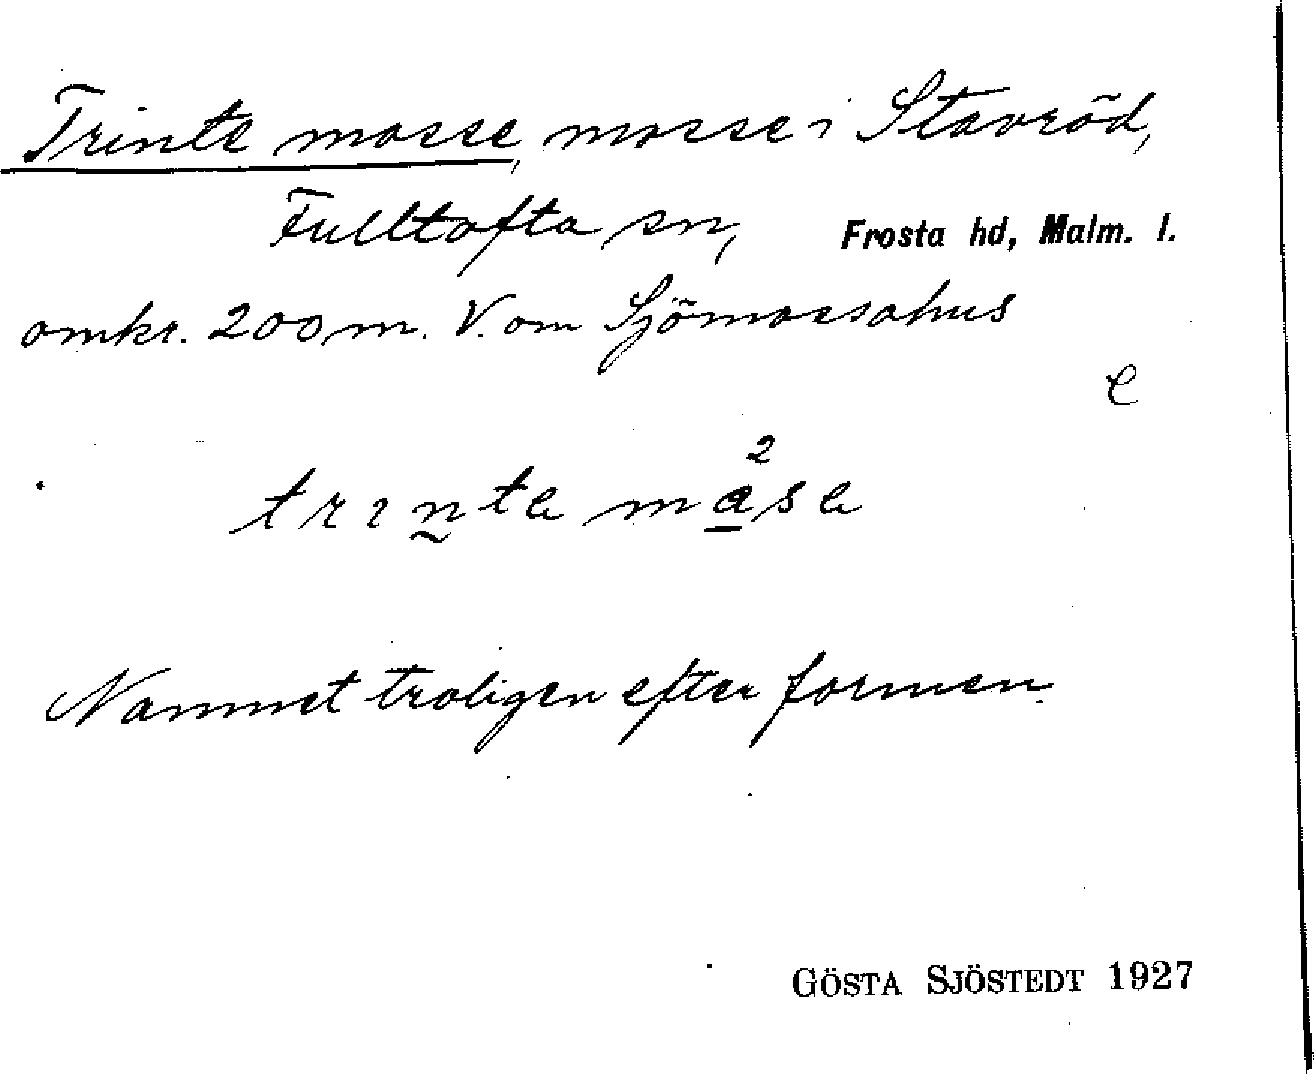 Trinte mosse, mosse i Stavröd,
Fulltofta sn, Frosta hd, Malm. l.
omkr. 200 m. V. om Sjömossahus
e
trinte måse
2
Namnet troligen efter formen.
GÖSTA SJÖSTEDT 1927